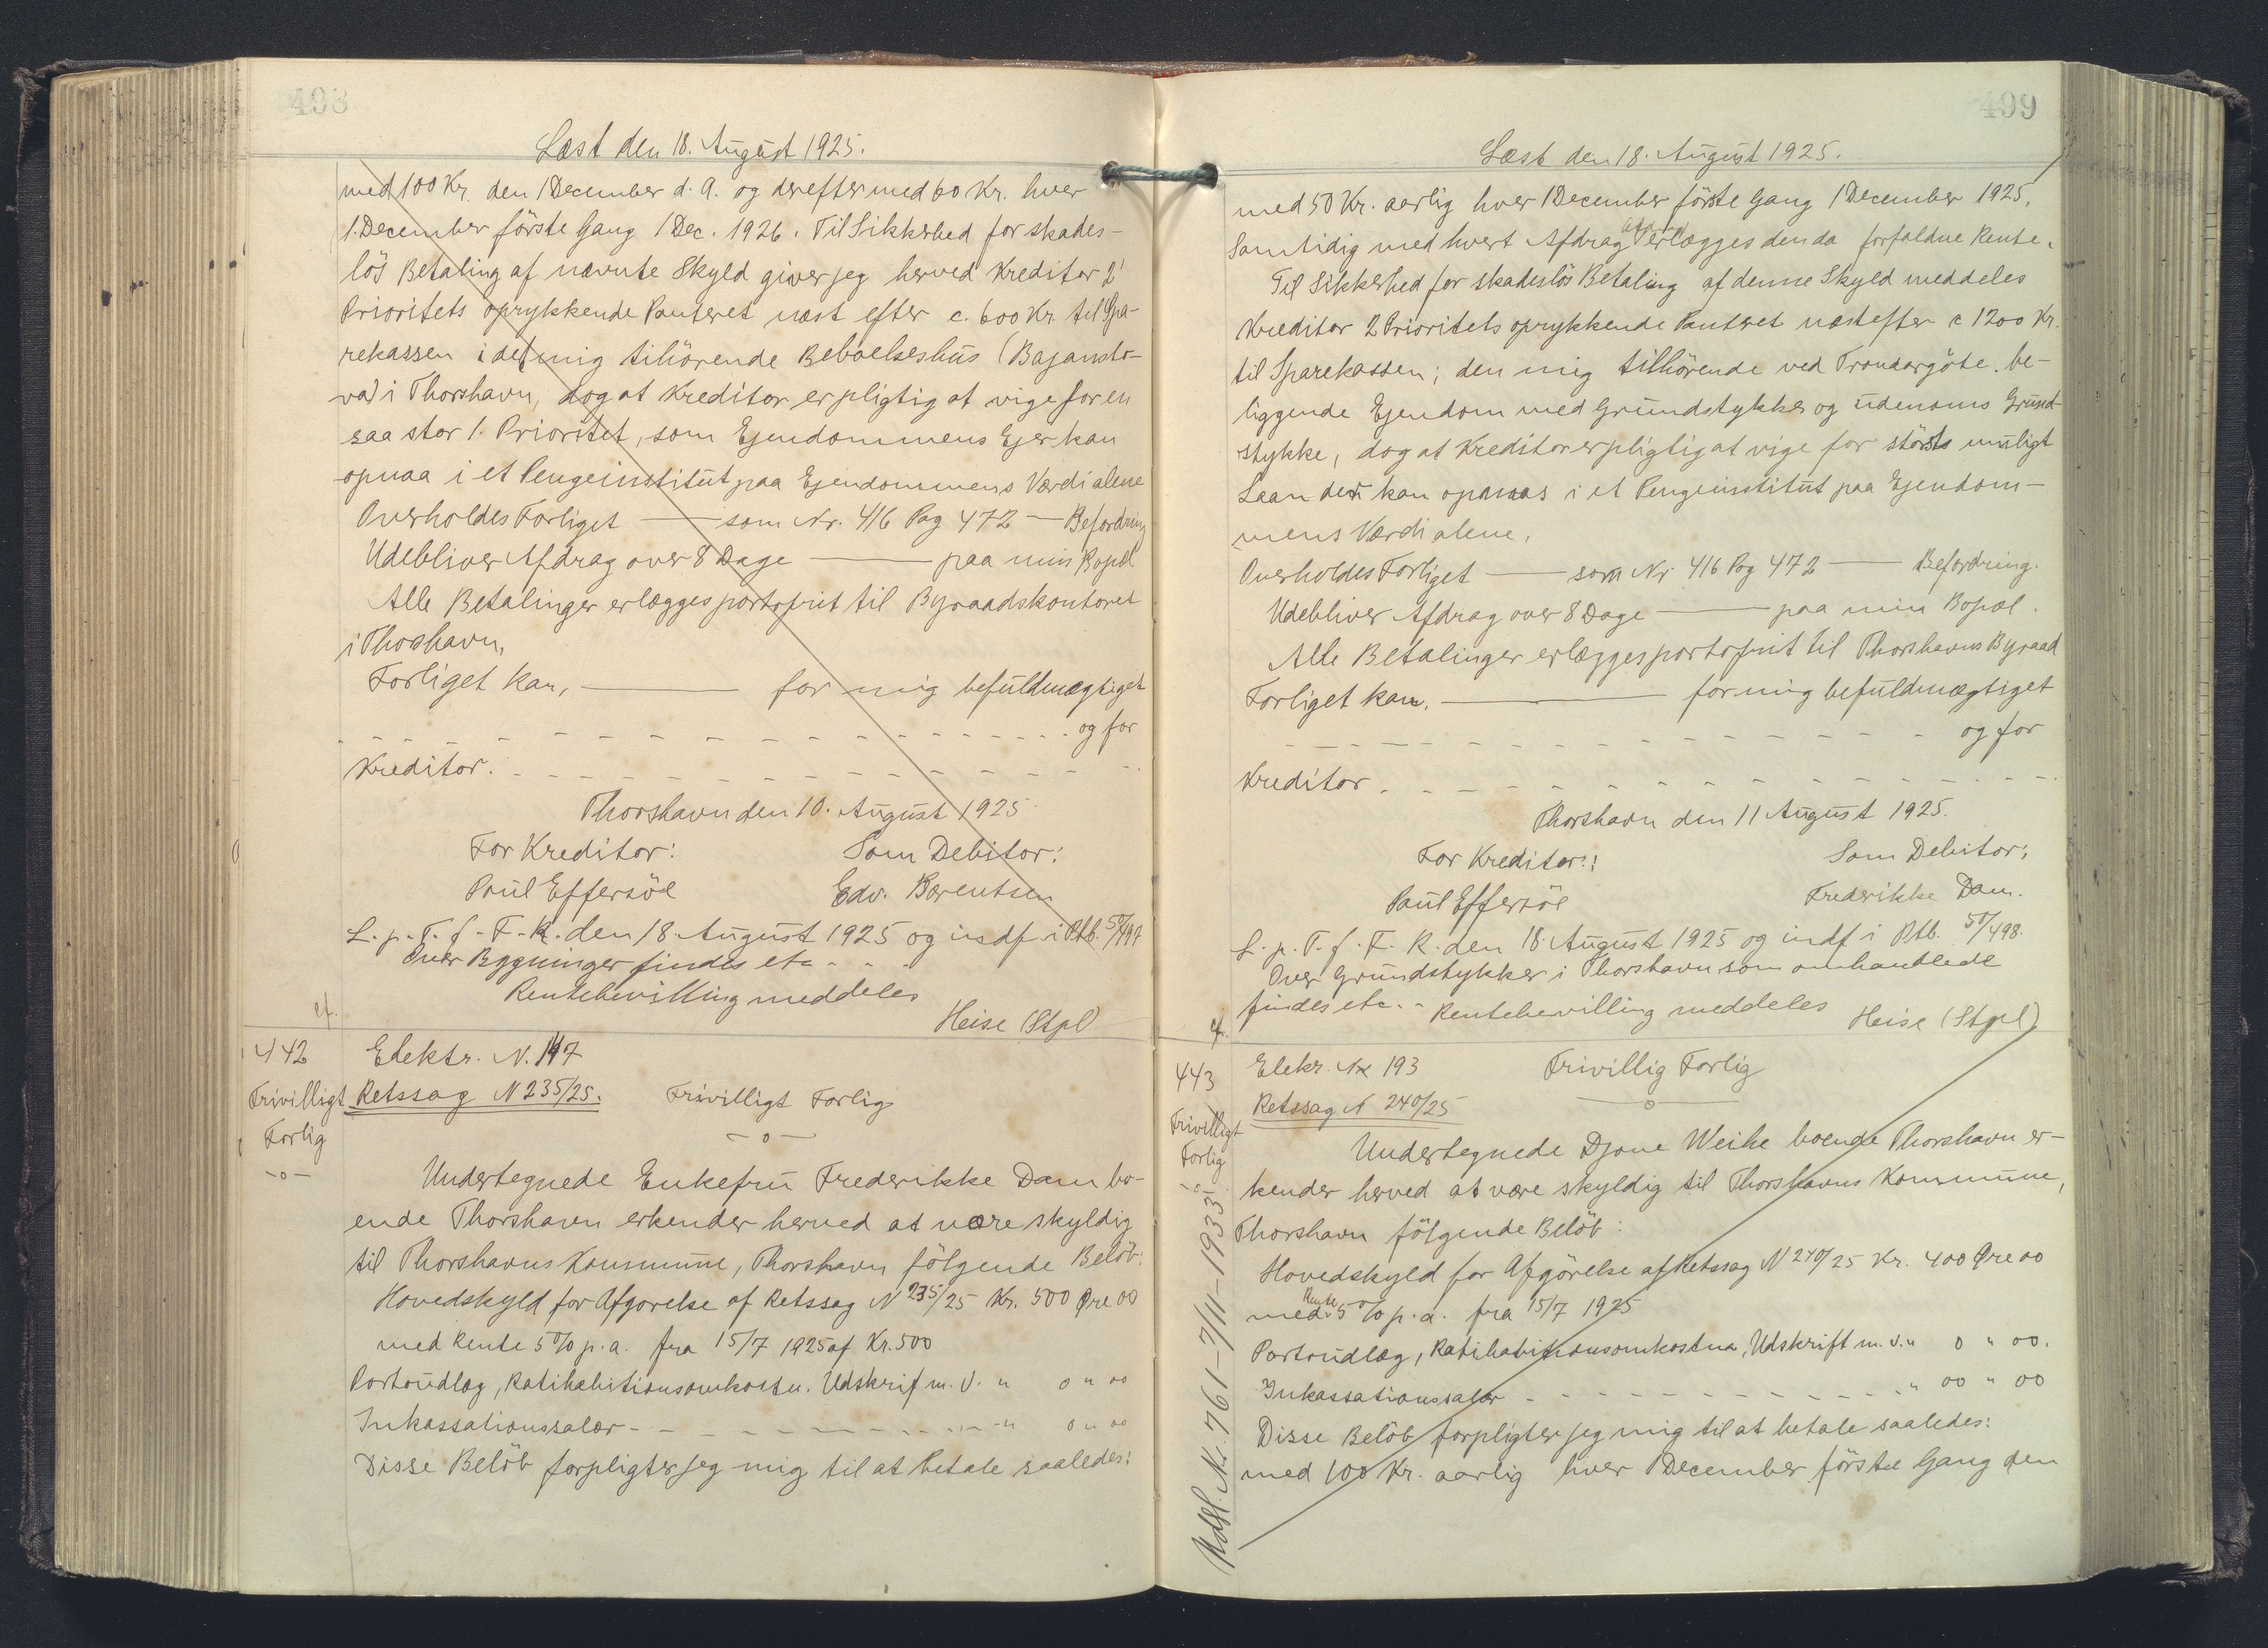 498
Læst den 18. August 1925.
med 100 Kr. den 1 December d. A. og derefter med 60 Kr. hver
1. December förste Gang 1 Dec. 1926. Til Sikkerhed for skades-
lös Betaling af nævnte Skyld giver jeg herved Kreditor 2'
Prioritets oprykkende Panteret næst efter c. 600 Kr. til Spa-
rekassen i det mig tilhörende Beboelseshus (Bajansto-
va) i Thorshavn, dog at Kreditor er pligtig at vige for en
saa stor 1. Prioritet, som Ejendommens Ejer kan
opnaa i et Pengeinstitut paa Ejendommens Værdi alene
Overholdes Forliget — som Nr. 416 Pag 472 — Befordring
Udebliver Afdrag over 8 Dage — paa min Bopæl
Alle Betalinger erlægges portofrit til Byraadskontoret
i Thorshavn,
Forliget kan, — for mig befuldmægtiget
- - - - - - - - - - - - - - - - og for
Kreditor. - - - - - - - - - - - - - -
Thorshavn den 10. August 1925
For Kreditor: Som Debitor:
Poul Effersöe Edv. Bærentsen
L. p. T. f. F. R. den 18. August 1925 og indf i Ptb. 5⁰/497
Over Bygninger findes etc - - .
Rentebevilling meddeles
Heise (Stpl)
cf.
442 Elektr. N. 147
Frivilligt Forlig
-o-
Retssag N 235/25. Frivilligt Forlig
-o-
Undertegnede Enkefru Frederikke Dam bo-
ende Thorshavn erkender herved at være skyldig
til Thorshavns Kommune, Thorshavn fölgende Belöb:
Hovedskyld for Afgörelse af Retssag N 235/25 Kr. 500 Øre 00
med Rente 5% p. a. fra 15/7 1925 af Kr. 500
Portoudlæg, Ratihabitionsomkostn. Udskrif m. V. " 0 " 00
Inkassationssalær - - - - - - - - - - " 0 " 00
Disse Belöb forpligter jeg mig til at betale saaledes:
499
Læst den 18. August 1925.
med 50 Kr. aarlig hver 1 December förste Gang 1 December 1925.
Samtidig med hvert Afdrag erlægges den da forfaldne Rente.
Til Sikkerhed for skadeslös Betaling af denne Skyld meddeles
Kreditor 2 Prioritets oprykkende Panteret næst efter c 1200 Kr.
til Sparekassen; den mig tilhörende ved Tróndargöte. be-
liggende Ejendom med Grundstykker og udenoms Grund-
stykke, dog at Kreditor er pligtig at vige for störste muligt
Laan der kan opnaas i et Pengeinstitut paa Ejendom-
mens Værdi alene,
Overholdes Forliget — som Nr 416 Pag 472 — Befordring.
Udebliver Afdrag over 8 Dage — paa min Bopæl.
Alle Betalinger erlægges portofrit til Thorshavns Byraad
Forliget kan, — for mig befuldmægtiget
- - - - - - - - - - - - - - og for
Kreditor. - - - - - - - - - - - - -
Thorshavn den 11 August 1925.
For Kreditor: Som Debitor:
Paul Effersöe Frederikke Dam.
L. p. T. f. F. R. den 18. August 1925 og indf i Ptb. 5⁰/498.
Over Grundstykker i Thorshavn som omhandlede
findes etc. - Rentebevilling meddeles
Heise (Stpl)
cf.
443 Elekr. Nr 193 Frivillig Forlig
Retssag N 240/25 -o-
Frivilligt Forlig
-o-
Undertegnede Djone Weihe boende Thorshavn er-
kender herved at være skyldig til Thorshavns Kommune,
Thorshavn fölgende Belöb:
Hovedskyld for Afgörelse af Retssag N 240/25 Kr. 400 Øre 00
med Rente 5% p. a. fra 15/7 1925
Portoudlæg, Ratihabitionsomkostna, Udskrift m. v. " 0 " 00.
Inkassationssalær - - - - - - - - - - " 00 " 00
Disse Belöb forpligter jeg mig til at betale saaledes:
med 100 Kr. aarlig hver 1 December förste Gang den
Udsl. Nr. 761-7/11-1933